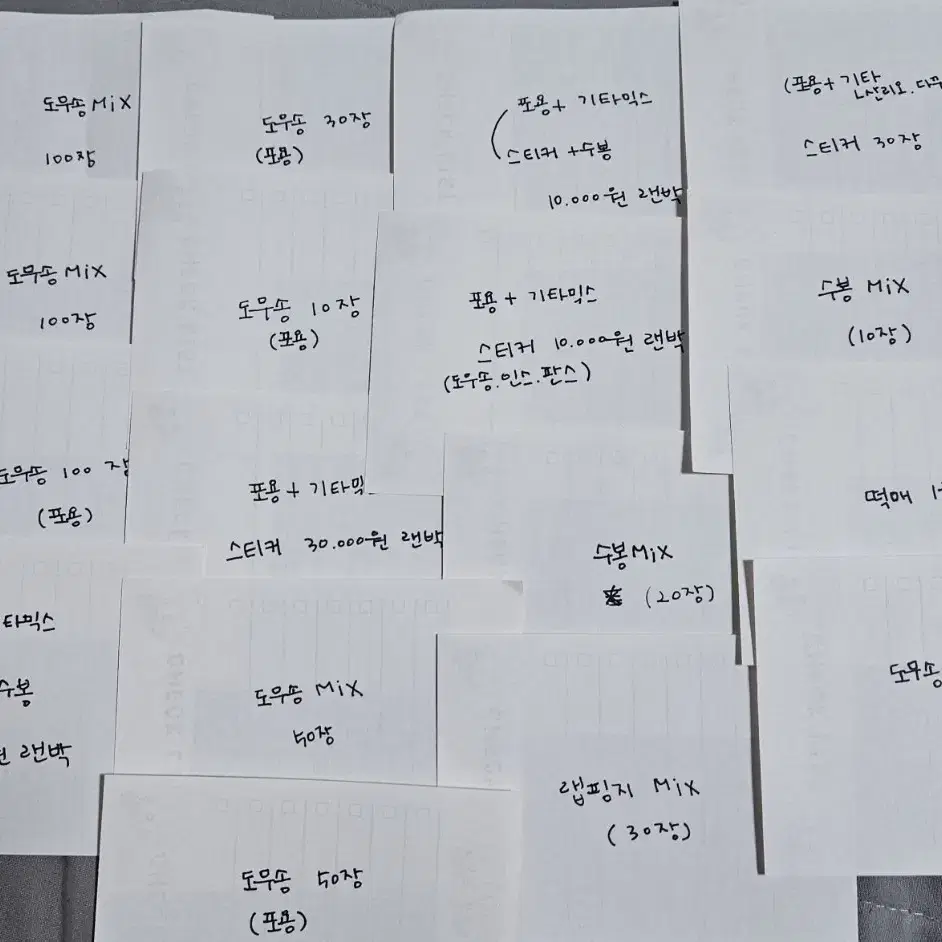 도무송 MiX
100장
도무송 30장
(포용)
포용 + 기타믹스
스티커 + 수봉
10.000원 랜박
(포용 + 기타
산리오. 다꾸
스티커 30장
도무송 MiX
100장
도무송 10장
(포용)
포용 + 기타믹스
스티커 10.000원 랜박
(도무송.인스.판스)
수봉 MiX
(10장)
도무송 100장
(포용)
포용 + 기타믹
스티커 30.000원 랜박
수봉 MiX
(20장)
떡메
타믹스
수봉
원 랜박
도무송 MiX
50장
랩핑지 MiX
(30장)
도무송
도무송 50장
(포용)